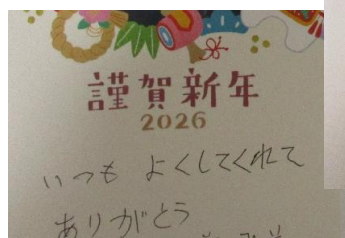 謹賀新年
2026
いつも よくしてくれて
ありがとう